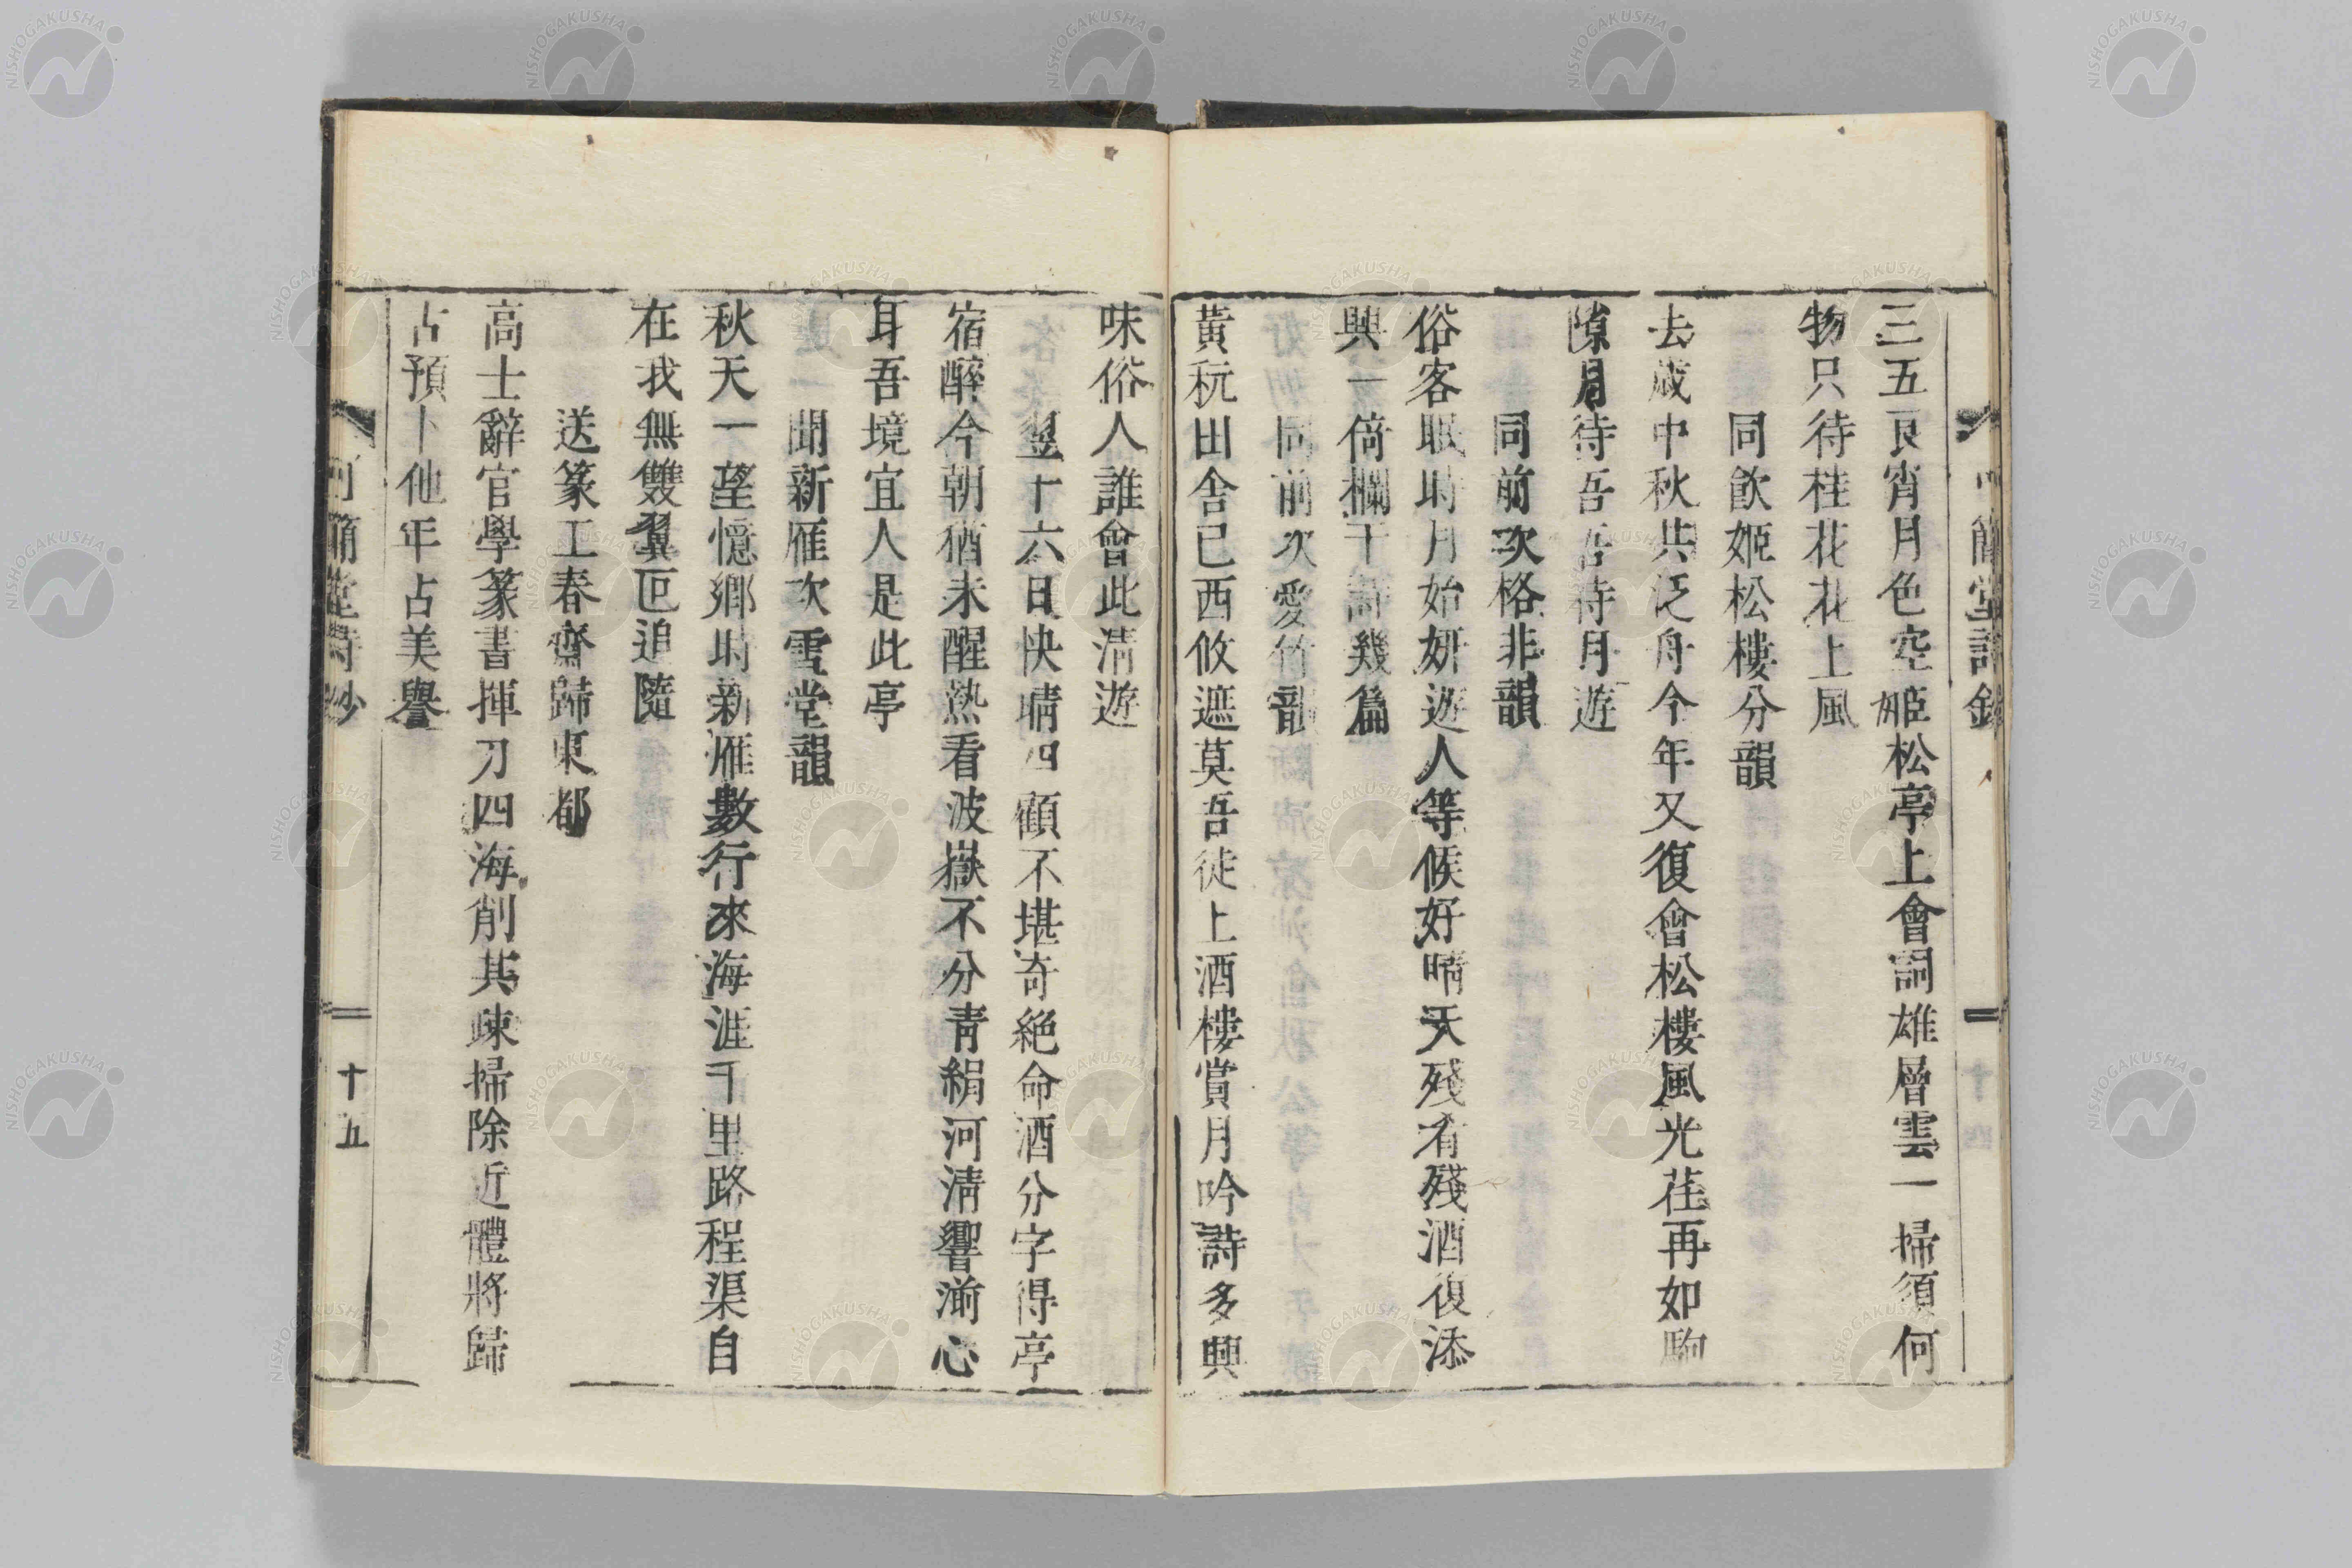 三五良宵月色空姫松亭上會詞雄層雲一掃須何
物只待桂花花上風
同飲姫松樓分韻
去歳中秋共泛舟今年又復會松樓風光荏再如駒
隙月待吾吾待月遊
同前次格非韻
俗客眠時月始妍遊人等候好晴天殘肴殘酒復添
興一倚欄干詩幾篇
同前次愛竹韻
黃秔田舍已西攸遮莫吾徒上酒樓賞月吟詩多興
味俗人誰會此清遊
翌十六日快晴四顧不堪奇絶命酒分字得亭
宿醉今朝猶未醒熱看波嶽不分青絹河清響湔心
耳吾境宜人是此亭
聞新雁次雪堂韻
秋天一望憶鄉時新雁數行來海涯千里路程渠自
在我無雙翼叵追隨
送篆工春齋歸東都
高士辭官學篆書揮刀四海削其疎掃除近體將歸
占預卜他年占美譽
十五
NISHOGAKUSHA